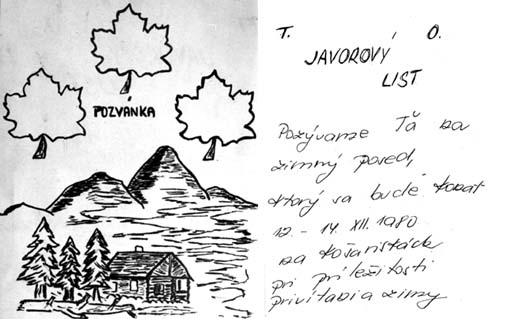 POZVÁNKA
T. O.
JAVOROVÝ
LIST
Pozývame Ťa na
zimný posed,
ktorý sa bude konať
12. - 14. XII. 1980
na Košariskách
pri príležitosti
privítania zimy